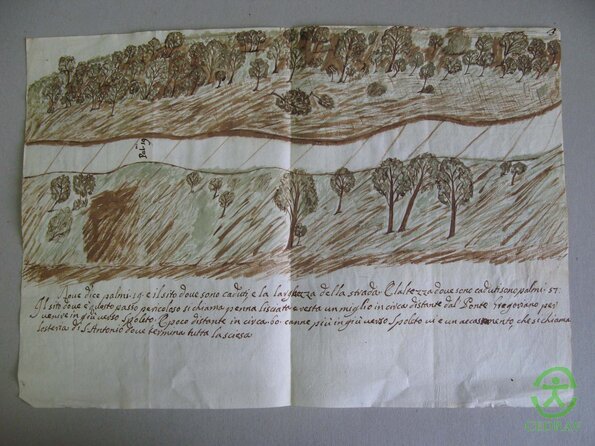 Pal: 19
Dove dice palmi. 19. e il sito dove sono caduti, e la larghezza della strada. E laltezza dove sono caduti sono palmi. 57.
Il sito dove è questo passo pericoloso si chiama penna lisciata e resta un miglio in circa distante dal Ponte
venire in giù verso Spoleto. E poco distante in circa. 60. canne più in giù verso Spoleto vi è un accasamento, che si chiama
losteria di S. Antonio dove termina tutta la scesa.